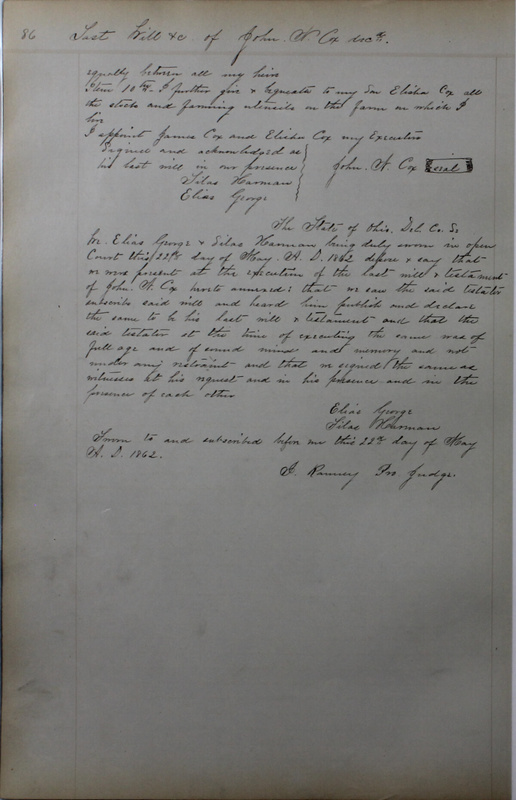 86 Last Will &c of John. W. Cox decd.
equally between all my heirs
Item 10th. I further give & bequeath to my Son Elisha Cox all
the stock and farming utensils on the farm on which I
live
I appoint James Cox and Elisha Cox my Executors
Signed and acknowledged as
his last will in our presence John. W. Cox seal
Silas Harman
Elias George
The State of Ohio. Del. Co. Ss
We. Elias George & Silas Harman being duly sworn in open
Court this 22d day of May. A. D. 1862 depose & say that
we were present at the execution of the last will & testament
of John. W. Cox hereto annexed: that we saw the said testator
subscribe said will and heard him publish and declare
the same to be his last will & testament and that the
said testator at the time of executing the same was of
full age and of sound mind and memory and not
under any restraint and that we signed the same as
witnesses at his request and in his presence and in the
presence of each other
Elias George
Silas Harman
Sworn to and subscribed before me this 22d day of May
A. D. 1862.
Ranney Pro. Judge.